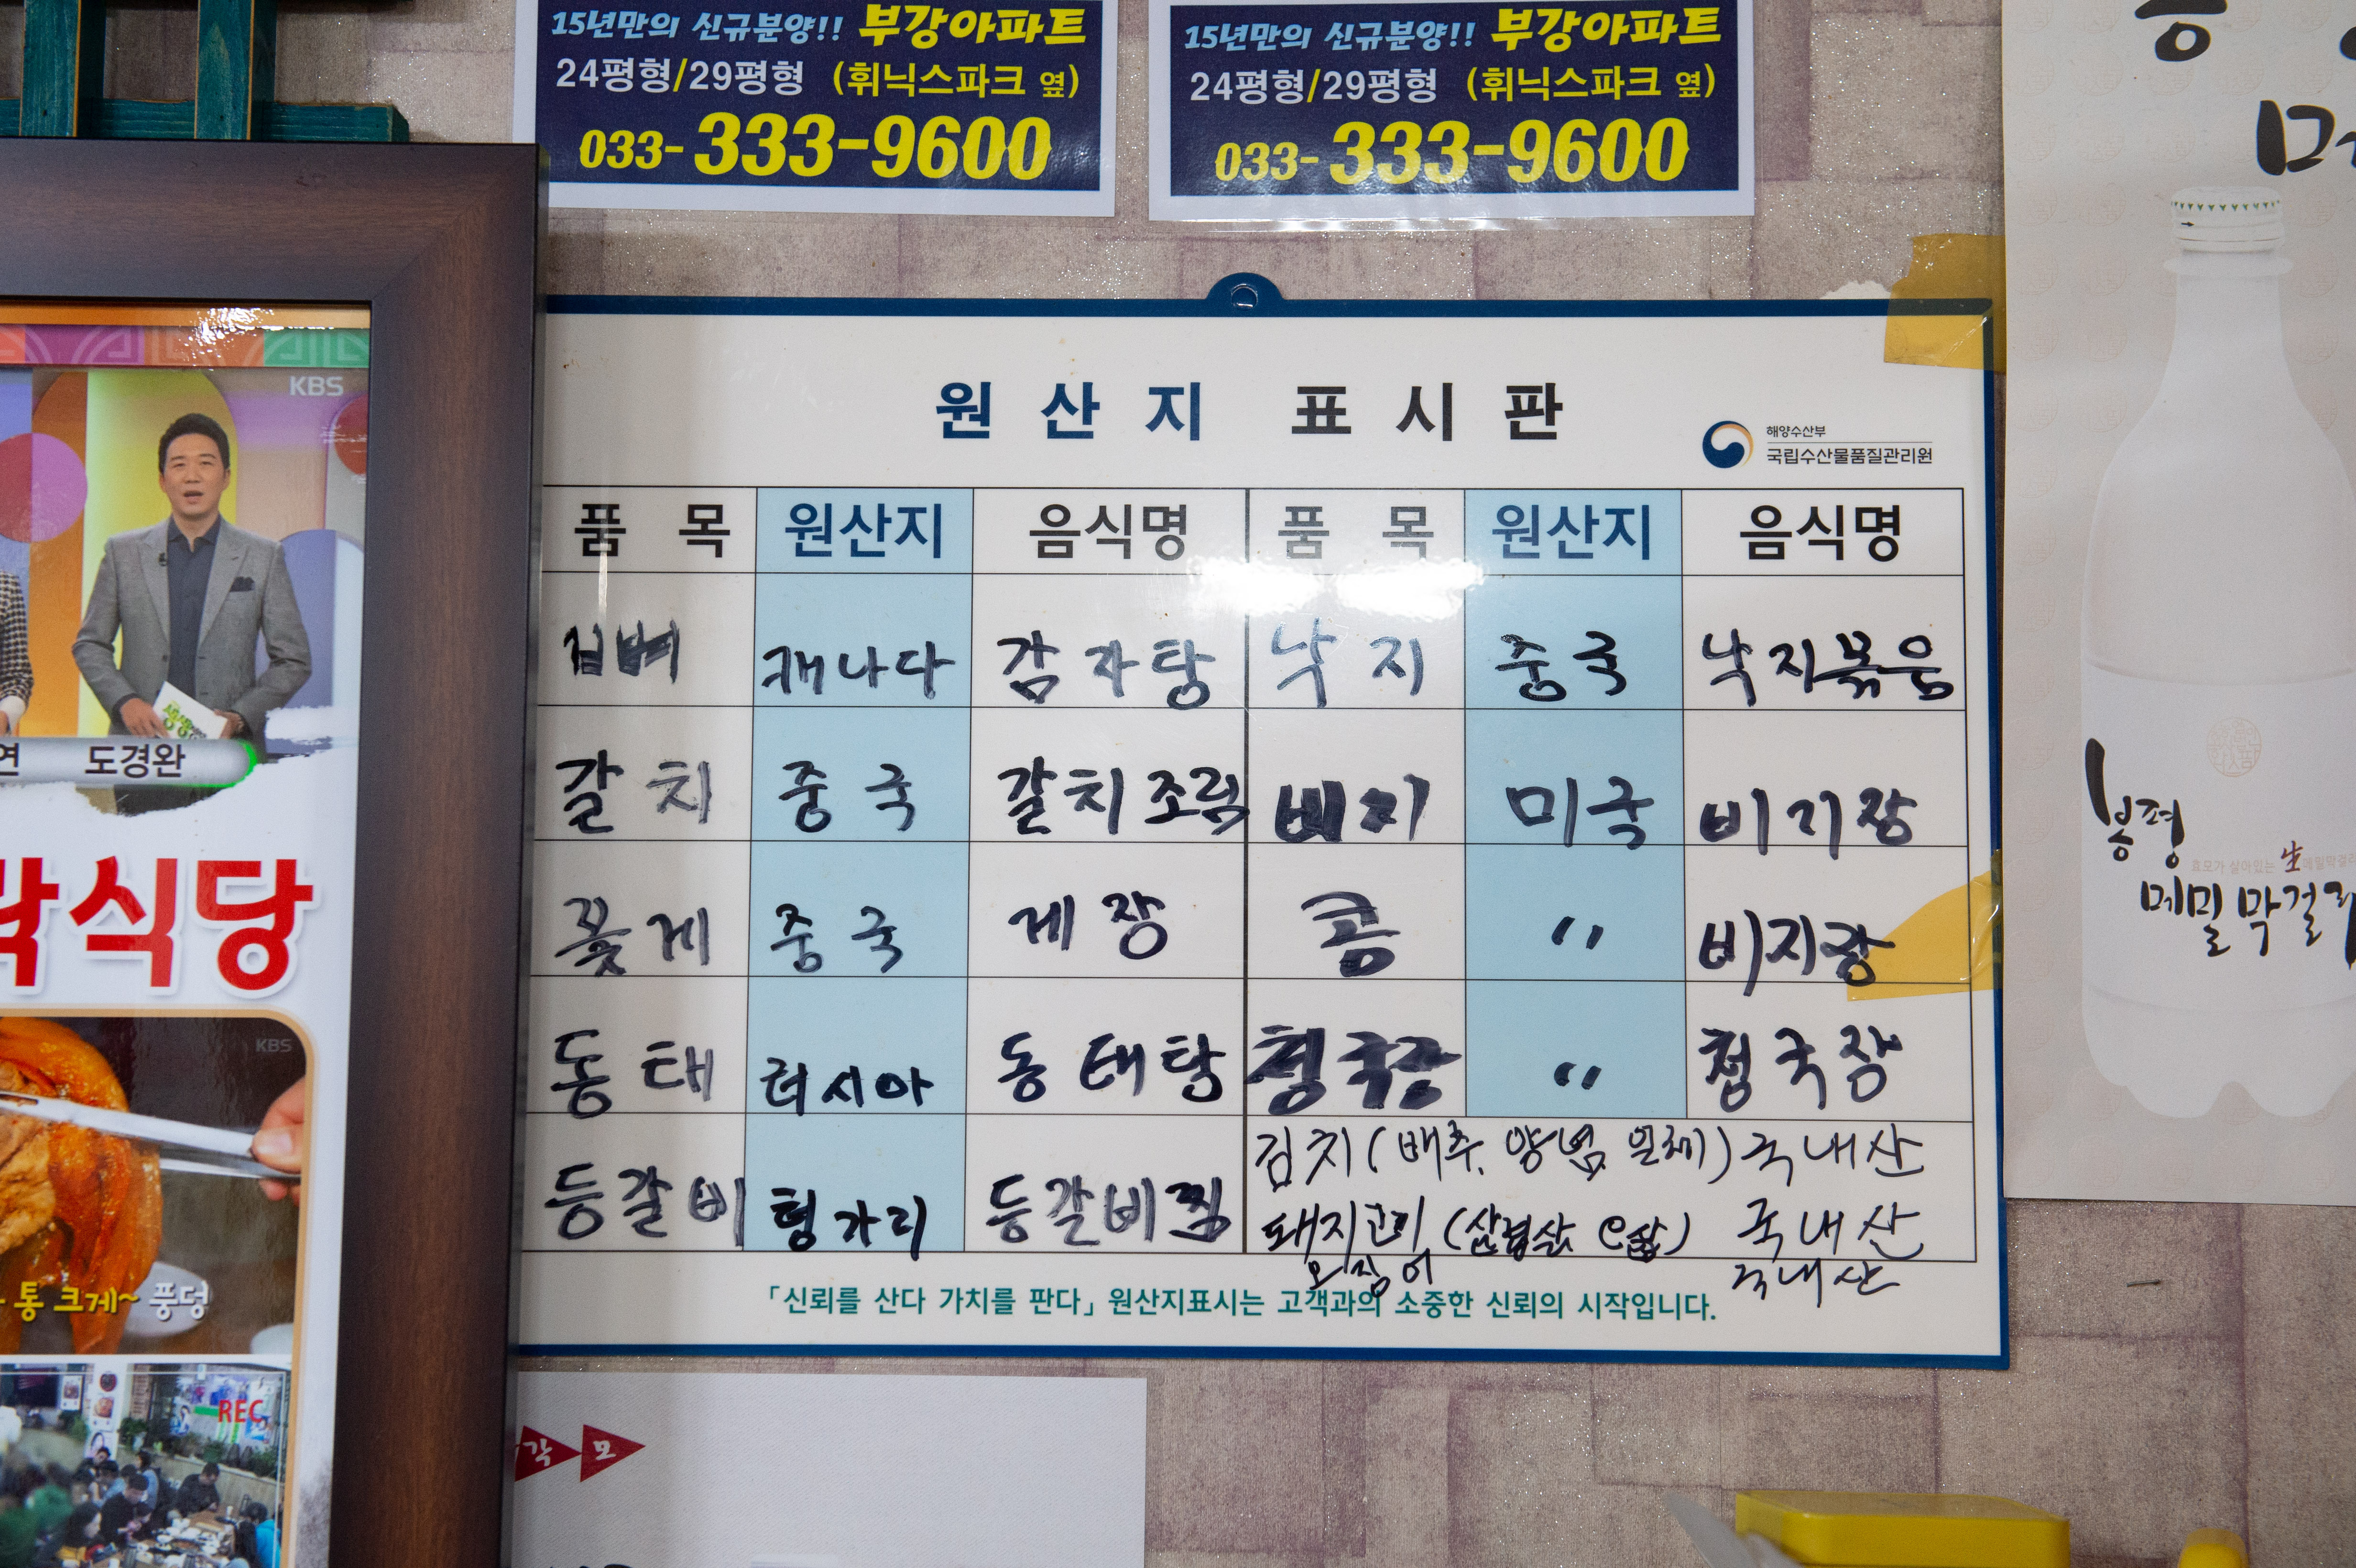 15년만의 신규분양!! 부강아파트
24평형/29평형 (휘닉스파크 옆)
033-333-9600
15년만의 신규분양!! 부강아파트
24평형/29평형 (휘닉스파크 옆)
033-333-9600
KBS
연 도경완
락식당
KBS
통 크게~ 풍덩
REC
원산지 표시판
해양수산부
국립수산물품질관리원
품목 원산지 음식명 품목 원산지 음식명
캐나다 감자탕 낙지 중국 낙지볶음
갈치 중국 갈치조림 비지 미국 비지장
꽃게 중국 게장 콩 〃 비지장
동태 러시아 동태탕 청국장 〃 청국장
등갈비 헝가리 등갈비찜
김치(배추, 양념 일체) 국내산
돼지고기 (삼겹살 ) 국내산
오징어 국내산
「신뢰를 산다 가치를 판다」 원산지표시는 고객과의 소중한 신뢰의 시작입니다.
각 모
봉평
효모가 살아있는 生메밀막걸리
메밀막걸리